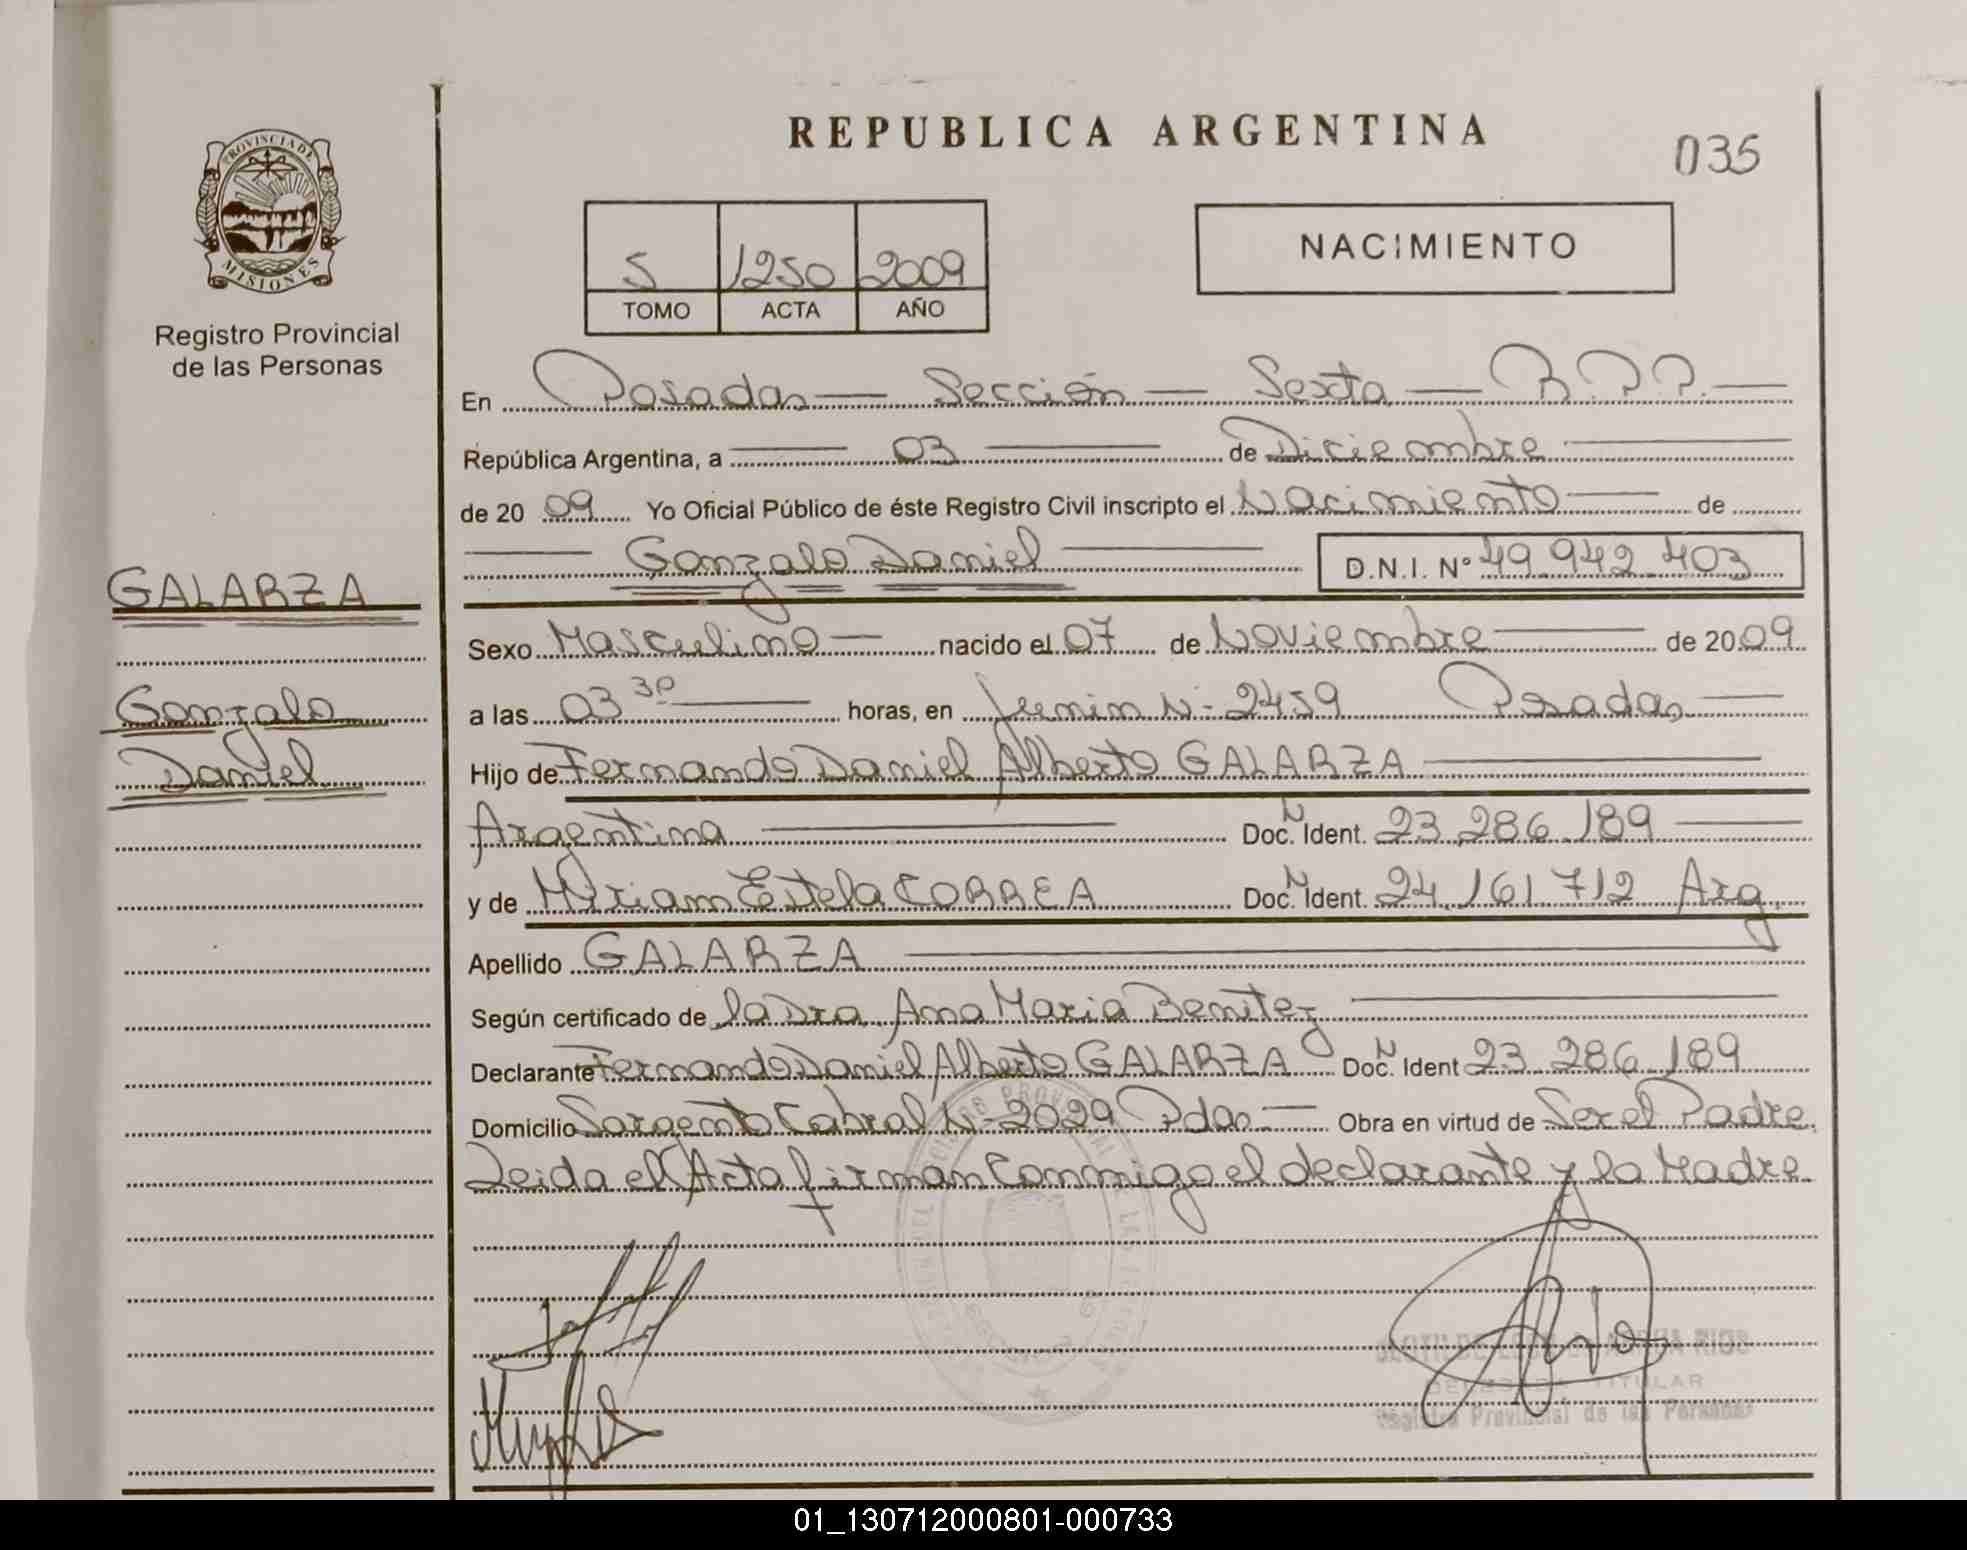 REPUBLICA ARGENTINA
035
PROVINCIA DE
MISIONES
Registro Provincial
de las Personas
5 1250 2009
TOMO ACTA AÑO
NACIMIENTO
En Posadas — Sección — Sexta — R.P.P. —
República Argentina, a — 03 — de Diciembre —
de 20 09 Yo Oficial Público de éste Registro Civil inscripto el Nacimiento — de
— Gonzalo Daniel — D.N.I. Nº 49.942.403
GALARZA
Gonzalo
Daniel
Sexo Masculino — nacido el 07 de Noviembre — de 2009
a las 03 30 — horas, en Junin Nº 2459 Posadas —
Hijo de Fernando Daniel Alberto GALARZA —
Argentina — Doc. N Ident. 23.286.189 —
y de Myriam Estela CORREA Doc. N Ident. 24.161.712 Arg.
Apellido GALARZA —
Según certificado de la Dra. Ana Maria Benitez —
Declarante Fernando Daniel Alberto GALARZA Doc. N Ident 23.286.189
Domicilio Sargento Cabral Nº 2029 Pdas. — Obra en virtud de Ser el Padre.
Leida el Acta firman Conmigo el declarante y la Madre.
RIOS
DELEGADA TITULAR
Registro Provincial de las Personas
01_130712000801-000733